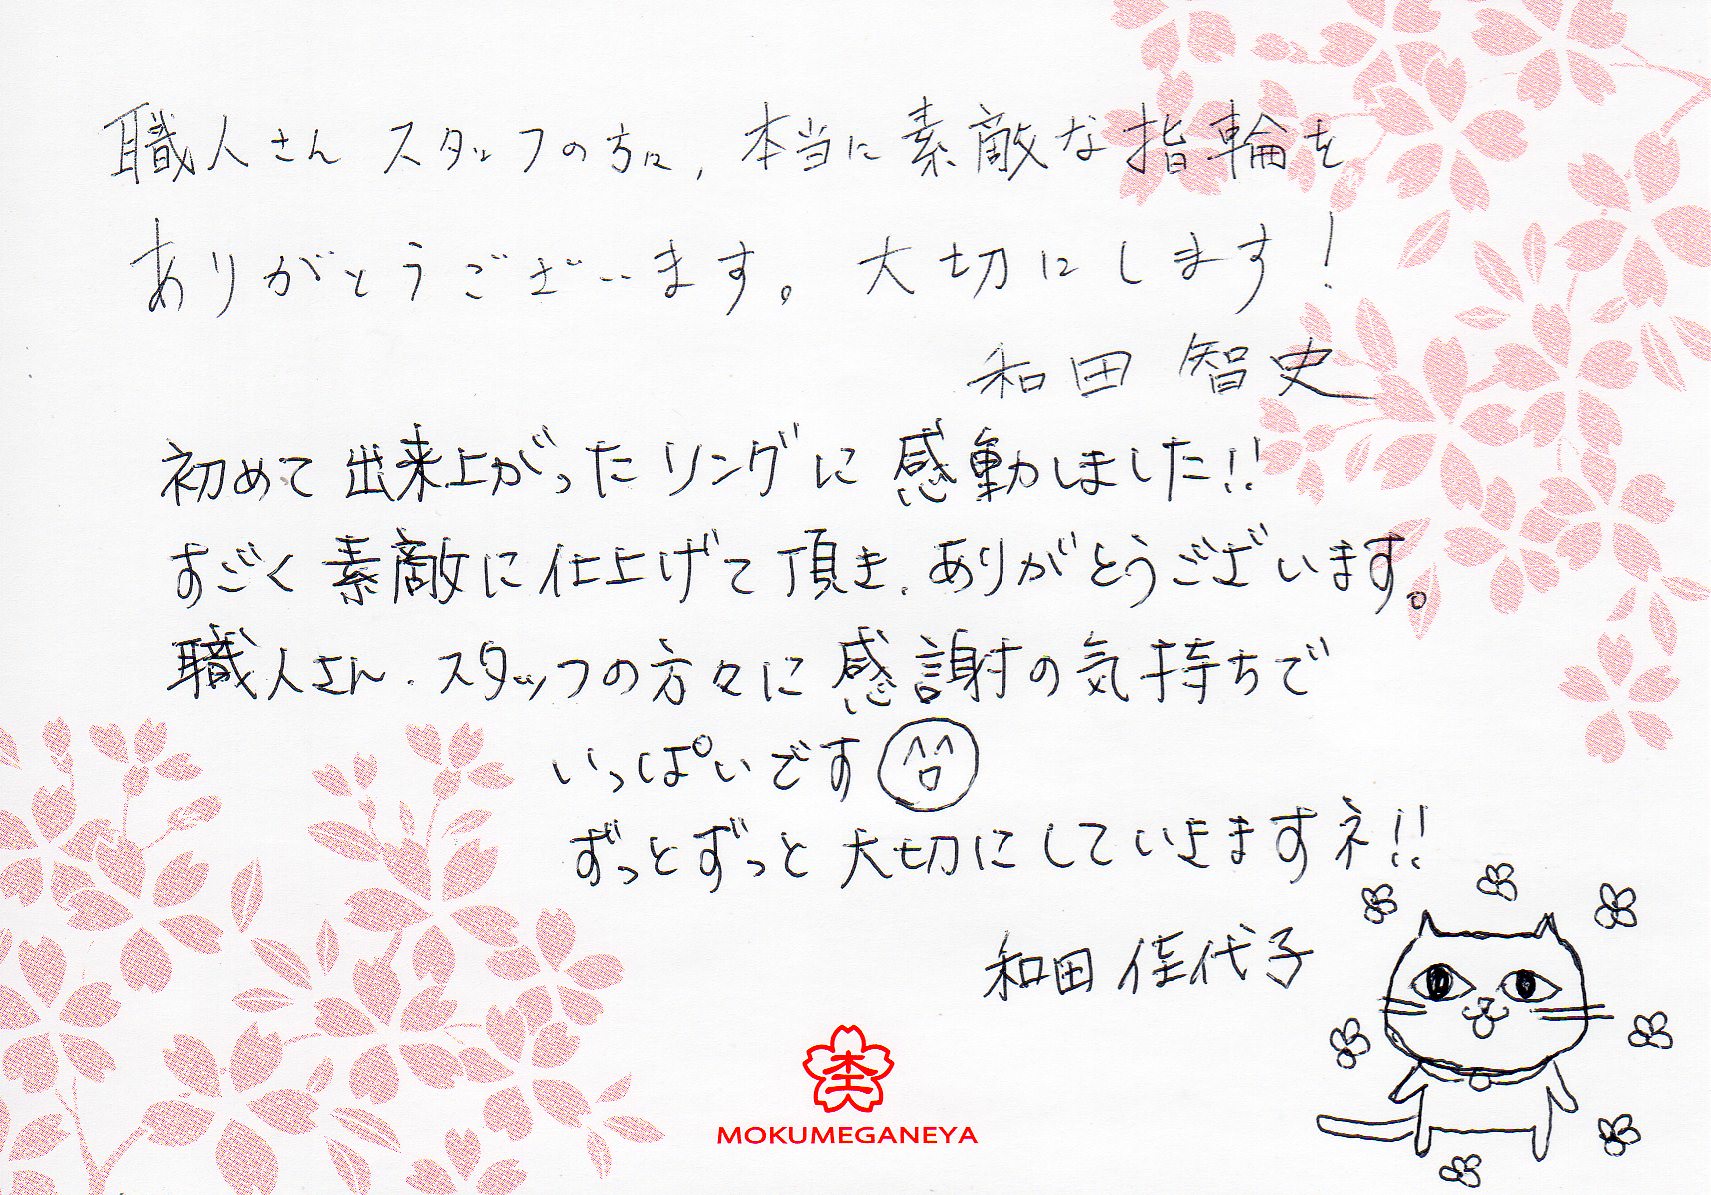 職人さん スタッフの方に、本当に素敵な指輪を
ありがとうございます。大切にします！
和田 智史
初めて出来上がったリングに感動しました!!
すごく素敵に仕上げて頂き、ありがとうございます。
職人さん・スタッフの方々に感謝の気持ちで
いっぱいです
ずっとずっと大切にしていきますネ!!
和田 佳代子
MOKUMEGANEYA